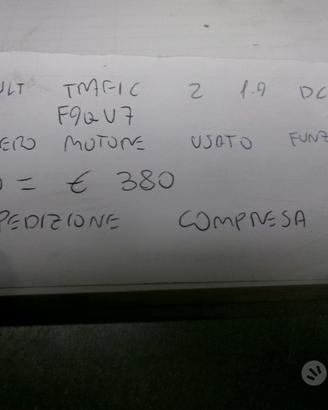 ULT TRAFIC 2 1.9 DC
F9QU7
ERO MOTORE USATO FUNZ
O = € 380
PEDIZIONE COMPRESA